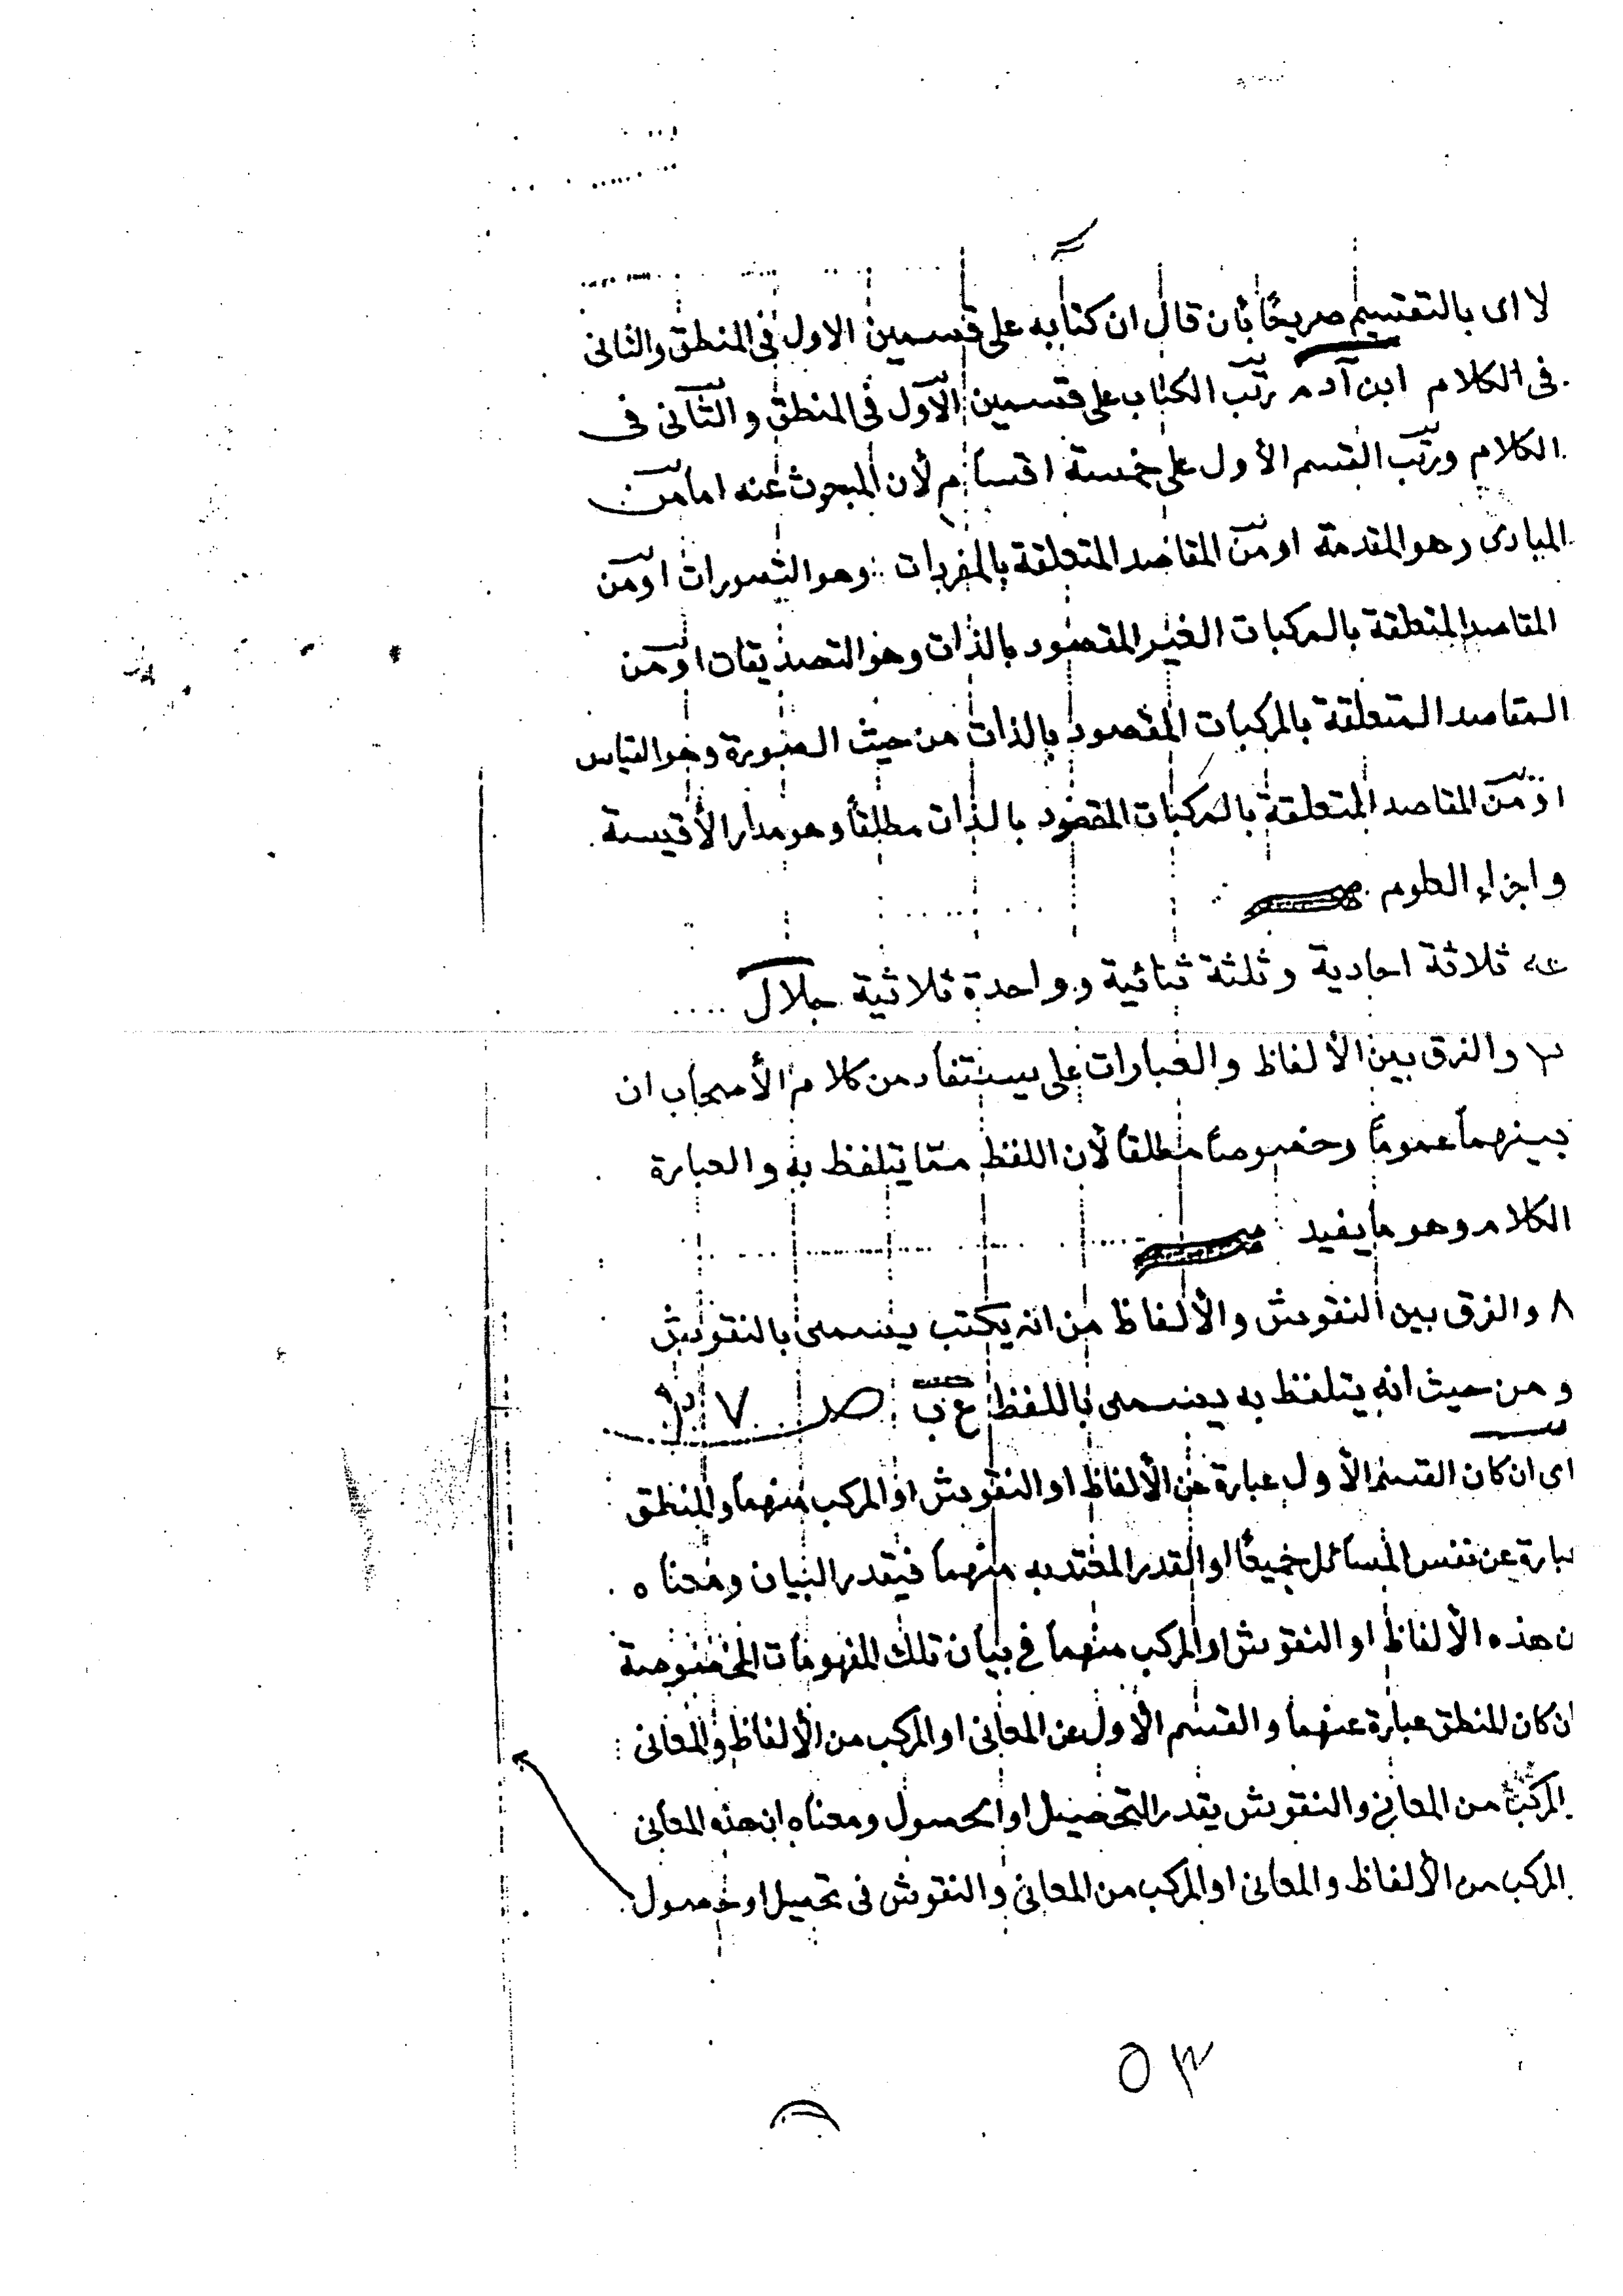 لا اى بالتقسيم صريحًا بأن قال ان كتابه على قسمين الاول فى المنطق والثانى
فى الكلام ابن آدم رتب الكتاب على قسمين الأول فى المنطق والثانى فى
الكلام ورتب القسم الأول على خمسة اقسام لأن المبحوث عنه اما من
المبادى وهو المقدمة او من المقاصد المتعلقة بالمفردات وهو التصورات او من
المقاصد المتعلقة بالمركبات الغير المقصود بالذات وهو التصديقات او من
المقاصد المتعلقة بالمركبات المقصود بالذات من حيث الصورة وهو القياس
او من المقاصد المتعلقة بالمركبات المقصود بالذات مطلقاً وهو مدار الأقيسة
واجزاء العلوم
ثلاثة احادية وثلثة ثنائية وواحدة ثلاثية جلال
٣ والفرق بين الألفاظ والعبارات على يستفاد من كلام الأصحاب ان
بينهما عموماً وخصوصاً مطلقاً لأن اللفظ ممّا يتلفظ به والعبارة
الكلام وهو ما يفيد
٨ والفرق بين النقوش والألفاظ من انه يكتب يسمى بالنقوش
ومن حيث انه يتلفظ به يسمى باللفظ ع ب ص ٧
اى ان كان القسم الأول عبارة عن الألفاظ او النقوش او المركب منهما والمنطق
عبارة عن نفس المسائل جميعًا او القدر المعتد به منهما فيقدر البيان ومعناه
ن هذه الألفاظ او النقوش او المركب منهما فى بيان تلك المفهومات المخصوصة
ان كان المنطق عبارة عنهما والقسم الأول عن المعانى او المركب من الألفاظ والمعانى
المركب من المعانى والنقوش يقدر التحصيل او الحصول ومعناه ان هذه المعانى
المركب من الألفاظ والمعانى او المركب من المعانى والنقوش فى تحصيل او حصول
٥٣